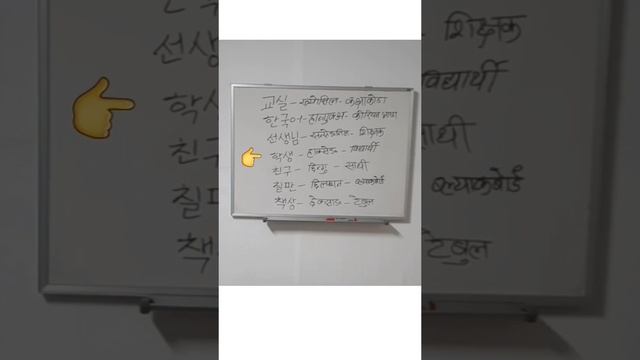 교실 - ख्योसिल - कक्षाकोठा
한국어 - हान्गुक्अ - कोरियन भाषा
선생님 - सन्सेङनिम - शिक्षक
학생 - हाक्सेङ - विद्यार्थी
친구 - छिन्गु - साथी
칠판 - छिलफान - ब्ल्याकबोर्ड
책상 - छेक्साङ - टेबुल